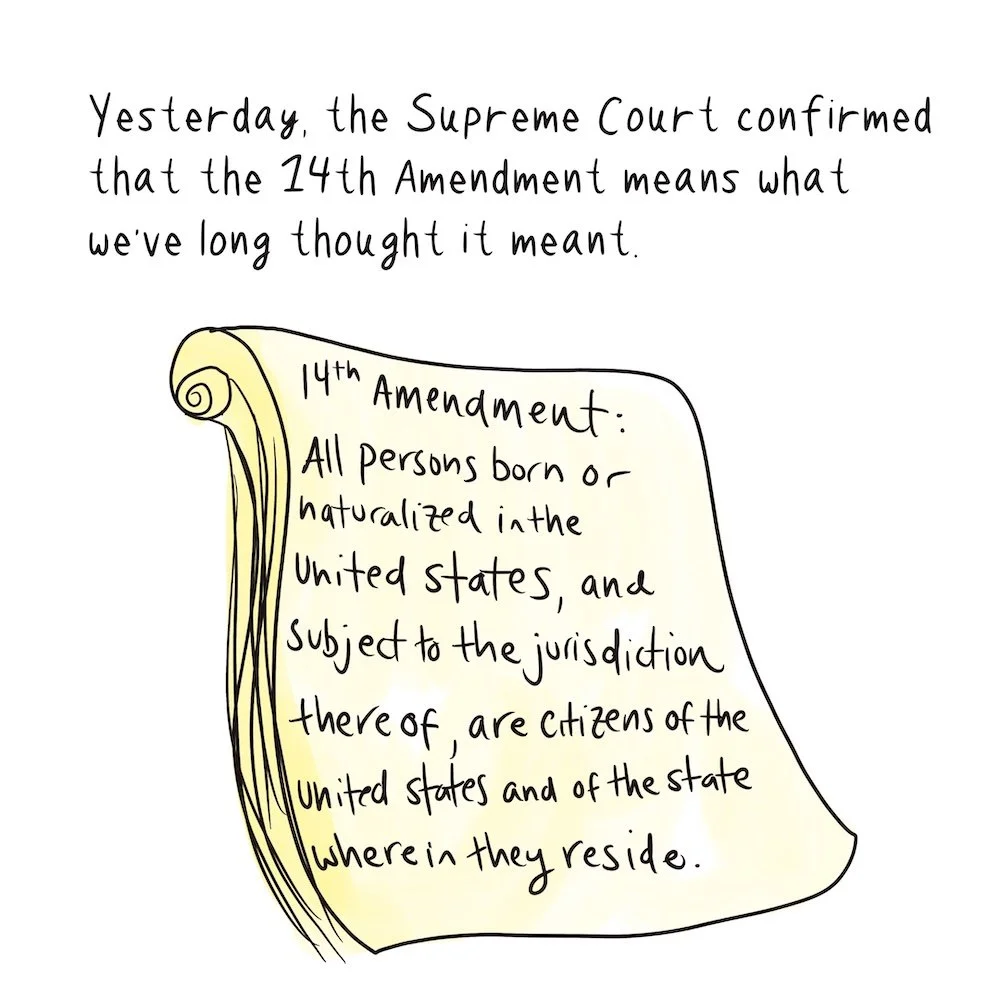 Yesterday, the Supreme Court confirmed
that the 14th Amendment means what
we've long thought it meant.
14th Amendment:
All persons born or
naturalized in the
United States, and
subject to the jurisdiction
thereof, are citizens of the
united states and of the state
wherein they reside.